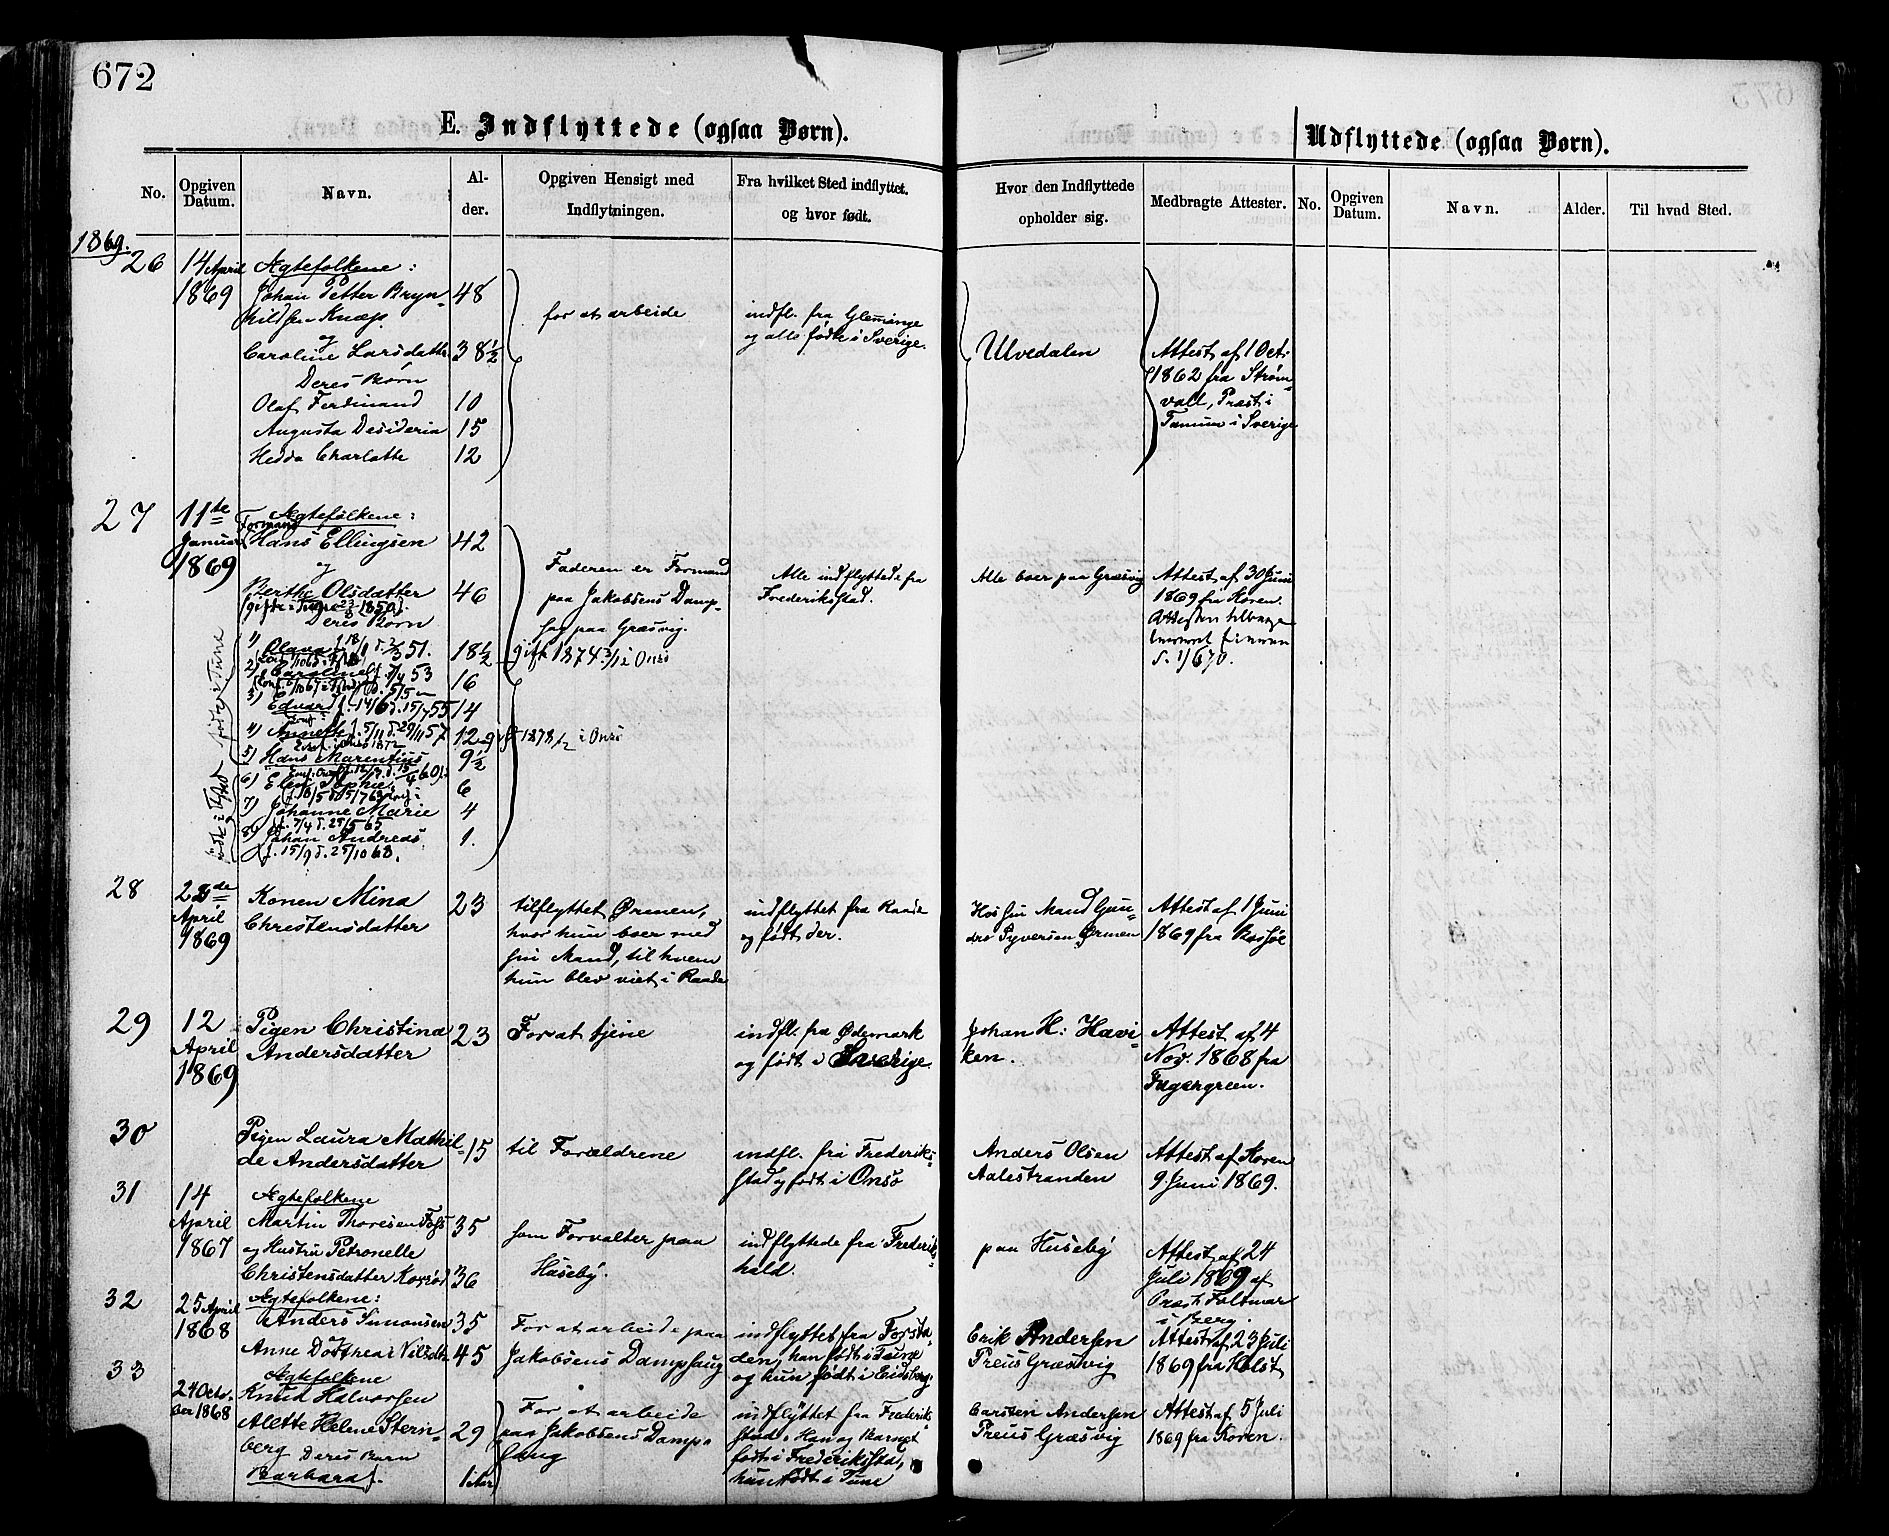 672
E. Indflyttede (ogsaa Børn).
Udflyttede (ogsaa Børn).
No.
Opgiven Datum.
Navn.
Al-
der.
Opgiven Hensigt med
Indflytningen.
Fra hvilket Sted indflyttet.
og hvor født.
Hvor den Indflyttede
opholder sig.
Medbragte Attester.
No.
Opgiven
Datum.
Navn.
Alder.
Til hvad Sted.
1869.
26
14 April
1869
Ægtefolkene:
Johan Petter Bryn-
hildsen Knæp
og
Caroline Larsdatter
Deres Børn
Olaf Ferdinand
Augusta Desideria
Hedda Charlotte
48
38½
10
15
12
for at arbeide
indfl. fra Glemminge
og alle fødte i Sverige.
Ulvedalen
Attest af 1 Oct.
1862 fra Strøm-
vall, Præst i
Tanum i Sverige
27
11te
Januar
1869
Ægtefolkene:
Formand
Hans Ellingsen
og
Berthe Olsdatter
Deres Børn
1)
2) Caroline
3) Edvard
4) Annette
5) Hans Marentius
6)
7) Johanne Marie
f. 7/4 d. 25/5 65
8) Johan Andreas
f. 15/9 d. 25/10 68.
42
46
18½
16
14
12
9½
6
4
1.
Faderen er Formand
paa Jakobsens Damp-
sag paa Græsvig.
gift 1874 i Onsø
gift 1878 i Onsø
Alle indflyttede fra
Frederiksstad.
Alle boer paa Græsvig
Attest af 30 Juni
1869 fra Koren.
28
22de
April
1869
Konen Mina
Christensdatter
23
tilflyttet Ørmen,
hvor hun boer med
sin Mand, til hvem
hun blev viet i Raade
indflyttet fra Raade
og født der.
Hos sin Mand Gun-
der Syversen Ørmen
Attest af 1 Juni
1869 fra
29
12
April
1869
Pigen Christina
Andersdatter
23
For at tjene
indfl. fra Ødemark
og født i Sverige.
Johan H: Havi-
ken.
Attest af 4
Nov. 1868 fra
Fagergreen.
30
Pigen Laura Mathil-
de Andersdatter
15
til Forældrene
indfl. fra Frederiks-
stad og født i Onsø
Anders Olsen
Aalestranden
Attest af Koren
9 Juni 1869.
31
14
April
1867
Ægtefolkene
Martin Thoresen Foss
og Hustru Petronelle
Christensdatter
35
36
som Forvalter paa
Huseby.
indflyttede fra Frederiks-
hald.
paa Huseby
Attest af 24
Juli 1869 af
Præst Foltmar
i Berg.
32
25 April
1868
Ægtefolkene:
Anders Simonsen
Anne Dorthea Nilsdtr
35
45
For at arbeide paa
Jakobsens Dampsaug
indflyttet fra Forsta-
den, han født i Tune
og hun født i Eidsberg.
Erik Andersen
Preus Græsvig
Attest af 23 Juli
1869 fra Holst
33
24 Octo-
ber 1868
Ægtefolkene
Knud Halvorsen
Alette Helene Stern-
berg Deres Barn
Barbara
29
1 Aar
For at arbeide
paa Jakobsens Damp-
saug
indflyttet fra Frederiks-
stad. Han og Barnet
født i Frederiksstad,
hun født i Tune
Carsten Andersen
Preus Græsvig
Attest af 5 Juli
1869 fra Koren.